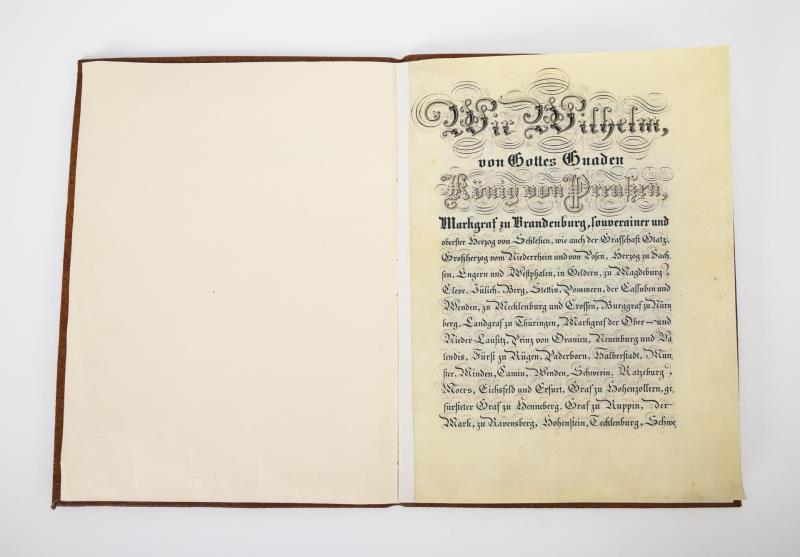 Wir Wilhelm,
von Gottes Gnaden
König von Preußen,
Markgraf zu Brandenburg, souverainer und
oberster Herzog von Schlesien, wie auch der Grafschaft Glatz,
Großherzog vom Niederrhein und von Posen, Herzog zu Sach
sen, Engern und Westphalen, in Geldern, zu Magdeburg,
Cleve, Jülich, Berg, Stettin, Pommern, der Cassuben und
Wenden, zu Mecklenburg und Crossen, Burggraf zu Nürn
berg, Landgraf zu Thüringen, Markgraf der Ober- und
Nieder-Lausitz, Prinz von Oranien, Neuenburg und Va
lendis, Fürst zu Rügen, Paderborn, Halberstadt, Mün
ster, Minden, Camin, Wenden, Schwerin, Ratzeburg,
Moers, Eichsfeld und Erfurt, Graf zu Hohenzollern, ge
fürsteter Graf zu Henneberg, Graf zu Ruppin, der
Mark, zu Ravensberg, Hohenstein, Tecklenburg, Schwe